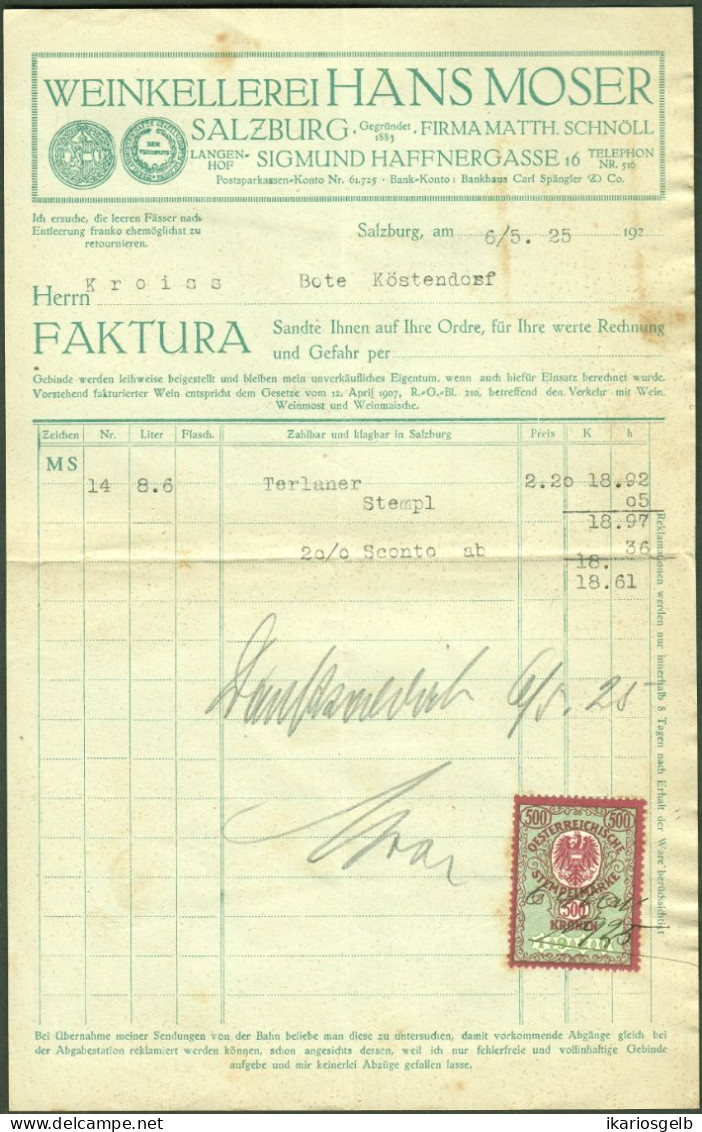 WEINKELLEREI HANS MOSER
SALZBURG · Gegründet 1883 · FIRMA MATTH. SCHNÖLL
LANGENHOF SIGMUND HAFFNERGASSE 16 TELEPHON NR. 516
Postsparkassen-Konto Nr. 61.725 · Bank-Konto: Bankhaus Carl Spängler & Co.
Ich ersuche, die leeren Fässer nach
Entleerung franko ehemöglichst zu
retournieren.
Salzburg, am 6/5. 25 192
Herrn Kroiss Bote Köstendorf
FAKTURA Sandte Ihnen auf Ihre Ordre, für Ihre werte Rechnung
und Gefahr per
Gebinde werden leihweise beigestellt und bleiben mein unverkäufliches Eigentum, wenn auch hiefür Einsatz berechnet wurde.
Vorstehend fakturierter Wein entspricht dem Gesetze vom 12. April 1907, R.-G.-Bl. 210, betreffend den Verkehr mit Wein,
Weinmost und Weinmaische.
Zeichen Nr. Liter Flasch. Zahlbar und klagbar in Salzburg Preis K h
MS
14 8.6 Terlaner 2.20 18.92
Stempl 05
18.97
2o/o Sconto ab 36
18.
18.61
Reklamationen werden nur innerhalb 8 Tagen nach Erhalt der Ware berücksichtigt
6/5. 25
500 500
OESTERREICHISCHE
STEMPELMARKE
500
KRONEN
Bei Übernahme meiner Sendungen von der Bahn beliebe man diese zu untersuchen, damit vorkommende Abgänge gleich bei
der Abgabestation reklamiert werden können, schon angesichts dersen, weil ich nur fehlerfreie und vollinhaltige Gebinde
aufgebe und mir keinerlei Abzüge gefallen lasse.
delcampe.net
ikariosgelb